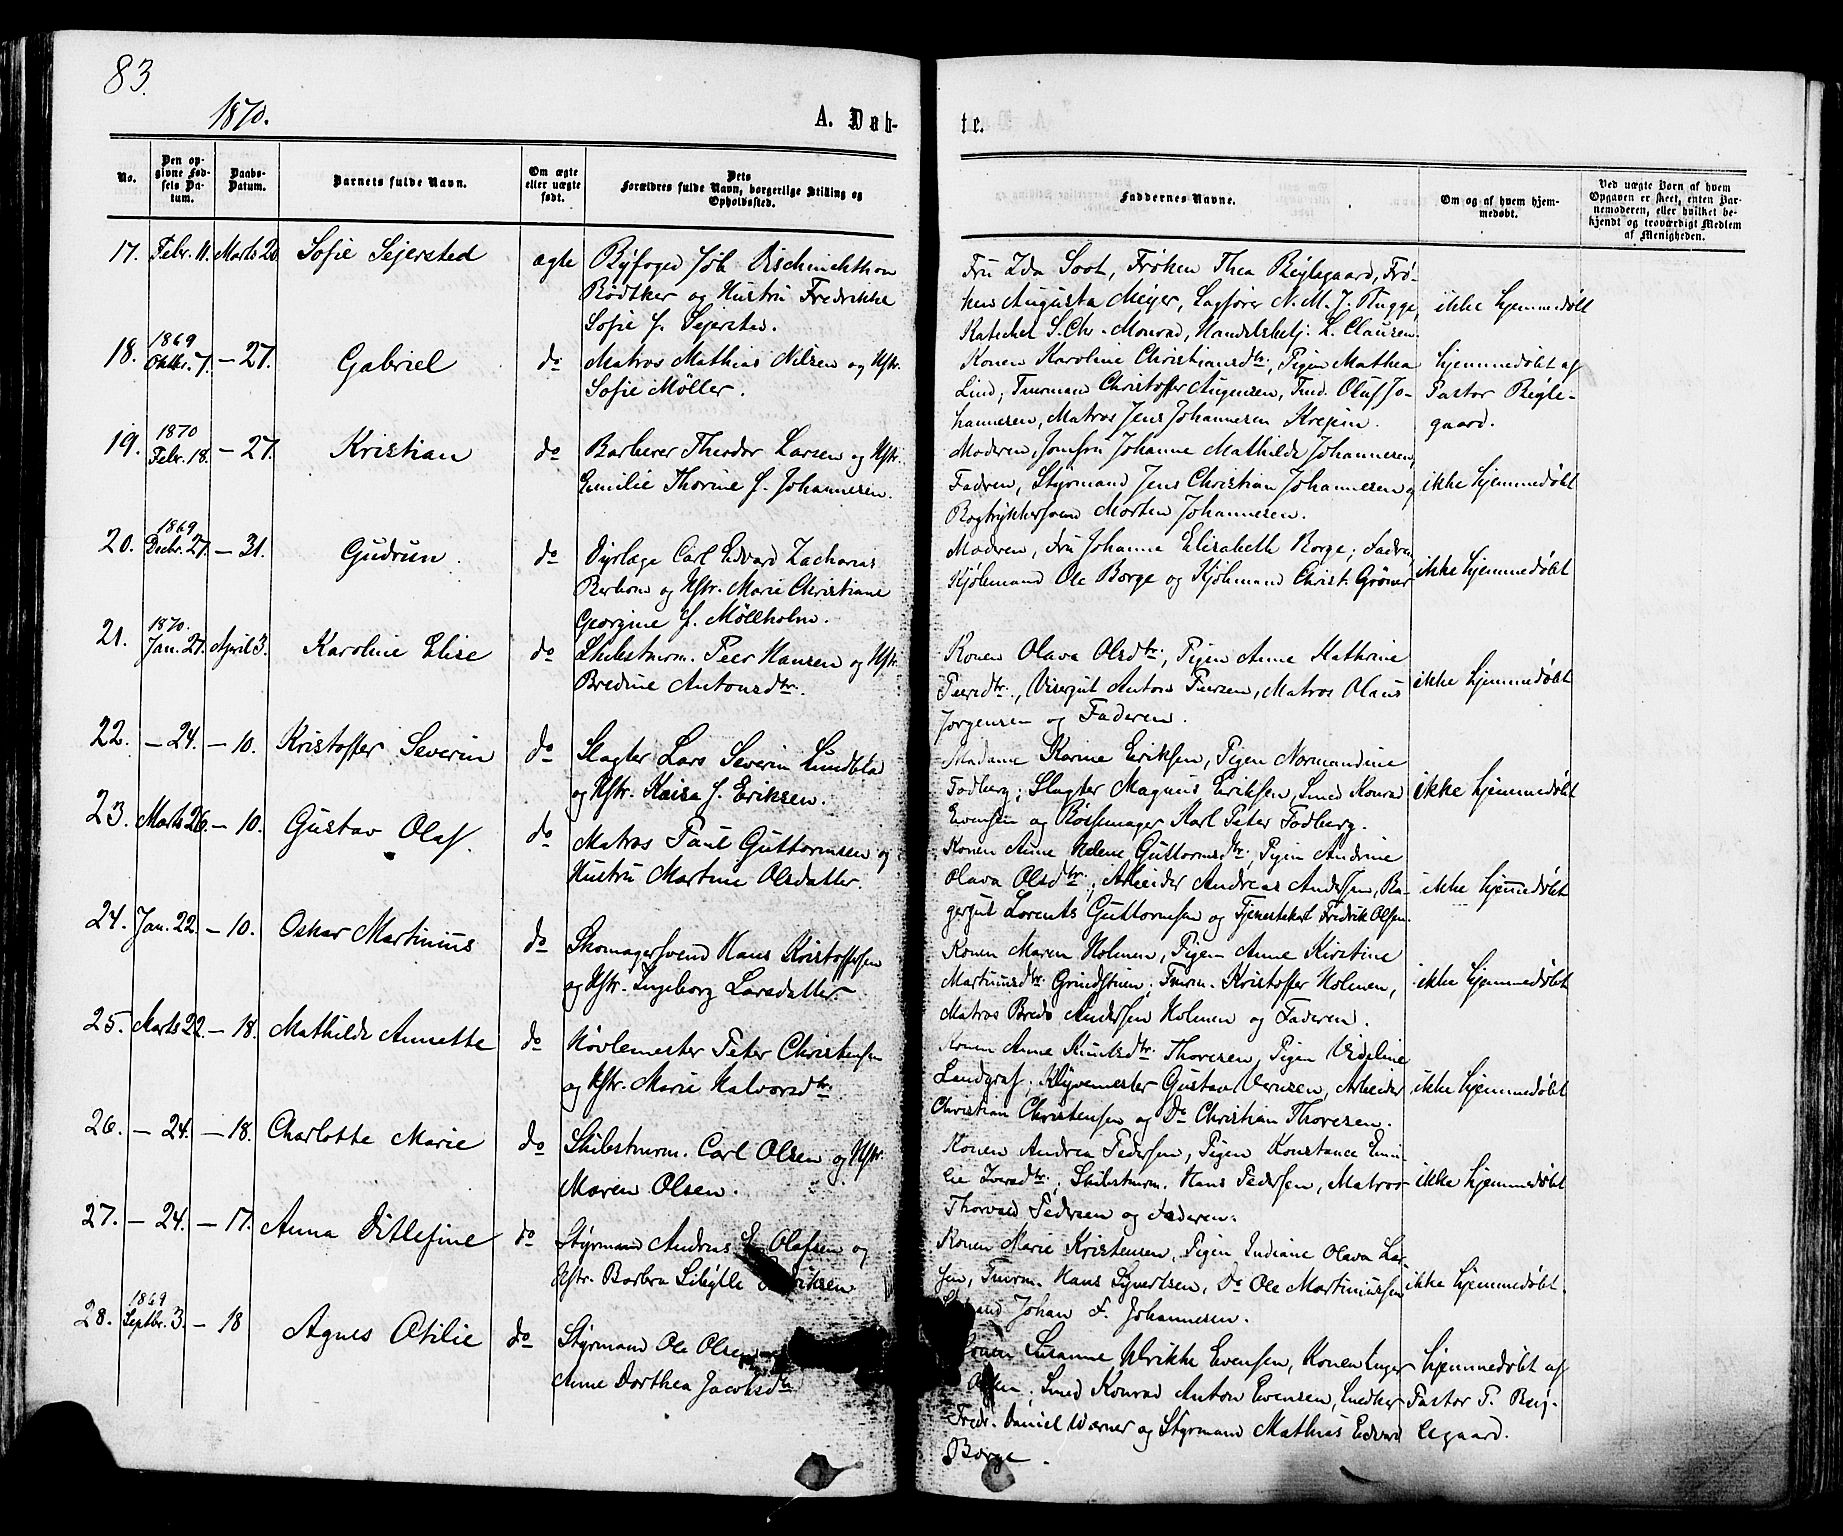 83.
1870.
A. Døb-
te.
No.
Den op-
givne Fød-
sels Da-
tum.
Daabs-
Datum.
Barnets fulde Navn.
Om ægte
eller uægte
født.
Dets
Forældres fulde Navn, borgerlige Stilling og
Opholdssted.
Faddernes Navne.
Om og af hvem hjem-
medøbt.
Ved uægte Børn af hvem
Opgaven er skeet, enten Bar-
nemoderen, eller hvilket be-
kjendt og troværdigt Medlem
af Menigheden.
17. Febr. 11. Marts 20. Sofie Sejersted ægte Byfoged Job Dischinchthon
Bødtker og Hustru Fredrikke
Sofie f. Sejersted.
Fru Ida Soot, Frøken Thea Bejlegaard, Frø-
ken Augusta Meyer, Sagfører N. M. J. Flugge,
Katechet S. Chr. Monrad, Handelsbetj. L. Clausen.
ikke hjemmedøbt
18. 1869
Oktbr. 7. — 27. Gabriel do Matros Mathias Nilsen og Hstr.
Sofie Møller.
Konen Karoline Christiansdtr., Pigen Mathea
Lind; Tmrmand Christoffer Augensen, Tmd. Oluf Jo-
hannesen, Matros Jens Johannesen Krejin.
hjemmedøbt af
Pastor Bejle-
gaard.
19. 1870
Febr. 18. — 27. Kristian do Barberer Theodor Larsen og Hstr.
Emilie Thorine f. Johannesen.
Moderen, Jomfru Johanne Mathilde Johannesen,
Fadren, Styrmand Jens Christian Johannesen og
Bogtrykkersvend Morten Johannesen.
ikke hjemmedøbt
20. 1869
Decbr. 27. — 31. Gudrun. do Dyrlæge Carl Edvard Zacharias
Berbom og Hstr. Marie Christiane
Georgine f. Möllholm.
Modren, Fru Johanne Elisabeth Borge; Fadren,
Kjöbmand Ole Borge og Kjöbmand Christ. Gröner
ikke hjemmedøbt
21. 1870.
Jan. 27. April 3. Karoline Elise do Skibstmrm. Peer Hansen og Hstr.
Bredine Antonsdtr.
Konen Olava Olsdtr., Pigen Anne Kathrine
Peersdtr., Visergut Anton Peersen, Matros Olaus
Jorgensen og Faderen.
ikke hjemmedøbt
22. — 24. — 10. Kristoffer Severin do Slagter Lars Severin Lundblad
og Hstr. Kaisa f. Eriksen.
Madame Karine Eriksen, Pigen Normandine
Fodberg; Slagter Magnus Eriksen, Smed Konrad
Evensen og Børsemager Karl Peter Fodberg.
ikke hjemmedøbt
23. Marts 26. — 10. Gustav Olaf. do Matros Paul Guttormsen og
Hustru Martine Olsdatter.
Konen Anne Helene Guttormsdtr., Pigen Andrine
Olava Olsdtr.; Arbeider Andreas Andersen, Ba-
gergut Lorents Guttormsen og Tjenestekarl Fredrik Olsen.
ikke hjemmedøbt
24. Jan. 22. — 10. Oskar Martinius do Skomagersvend Hans Kristoffersen
og Hstr. Ingeborg Larsdatter.
Konen Maren Holmen, Pigen Anne Kirstine
Martinusdtr. Grindstuen; Tmrm. Kristoffer Holmen,
Matros Brede Andersen Holmen og Faderen.
ikke hjemmedøbt
25. Marts 22. — 18. Mathilde Annette do Høvlemester Peter Christensen
og Hstr. Marie Halvorsdtr.
Konen Anne Knudsdtr. Thoresen, Pigen Videline
Landgraf; Klyvemester Gustav Vernsen, Arbeider
Christian Christensen og Do Christian Thoresen.
ikke hjemmedøbt
26. — 24. — 18. Charlotte Marie do Skibstmrm. Carl Olsen og Hstr.
Maren Olsen.
Konen Andrea Pedersen, Pigen Konstance Emi-
lie Iversdtr.; Skibstmrm. Hans Pedersen, Matros
Thorvald Pedersen og Faderen.
ikke hjemmedøbt
27. — 24. — 17. Anna Ditlefine do Styrmand Andreas Olafsen og
Hstr. Barbra Sibylle
Konen Marie Kristensen, Pigen Indiane Olava Lar-
sen, Tmrm. Hans Syvertsen, Do Ole Martiniussen
Johan F. Johannesen.
ikke hjemmedøbt.
28. 1869
Septbr. 3. — 18 Agnes Otilie do Styrmand Ole Olsen
Anne Dorthea Jacobsdtr
Konen Susanne Ulrikke Evensen, Konen Inger
Olsen; Smed Konrad Anton Evensen, Snedker
Fredr. Daniel Wærner og Styrmand Mathias Edvard
Borge.
hjemmedøbt af
Pastor P. Bej-
legaard.